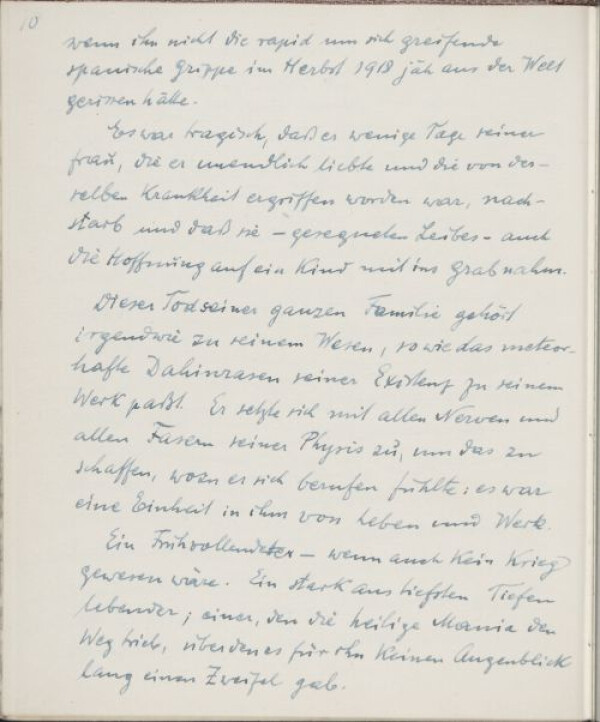 10
wenn ihn nicht die rapid um sich greifende
spanische Grippe im Herbst 1918 jäh aus der Welt
gerissen hätte.
Es war tragisch, daß er wenige Tage seiner
Frau, die er unendlich liebte und die von der-
selben Krankheit ergriffen worden war, nach-
starb und daß sie – gesegneten Leibes – auch
die Hoffnung auf ein Kind mit ins Grab nahm.
Dieser Tod seiner ganzen Familie gehört
irgendwie zu seinem Wesen, so wie das meteor-
hafte Dahinrasen seiner Existenz zu seinem
Werk paßt. Er setzte sich mit allen Nerven und
allen Fasern seiner Physis zu, um das zu
schaffen, wozu er sich berufen fühlte: es war
eine Einheit in ihm von Leben und Werk.
Ein Frühvollendeter – wenn auch kein Krieg
gewesen wäre. Ein stark aus tiefsten Tiefen
lebender; einer, den die heilige Mania den
Weg trieb, über den es für ihn keinen Augenblick
lang einen Zweifel gab.